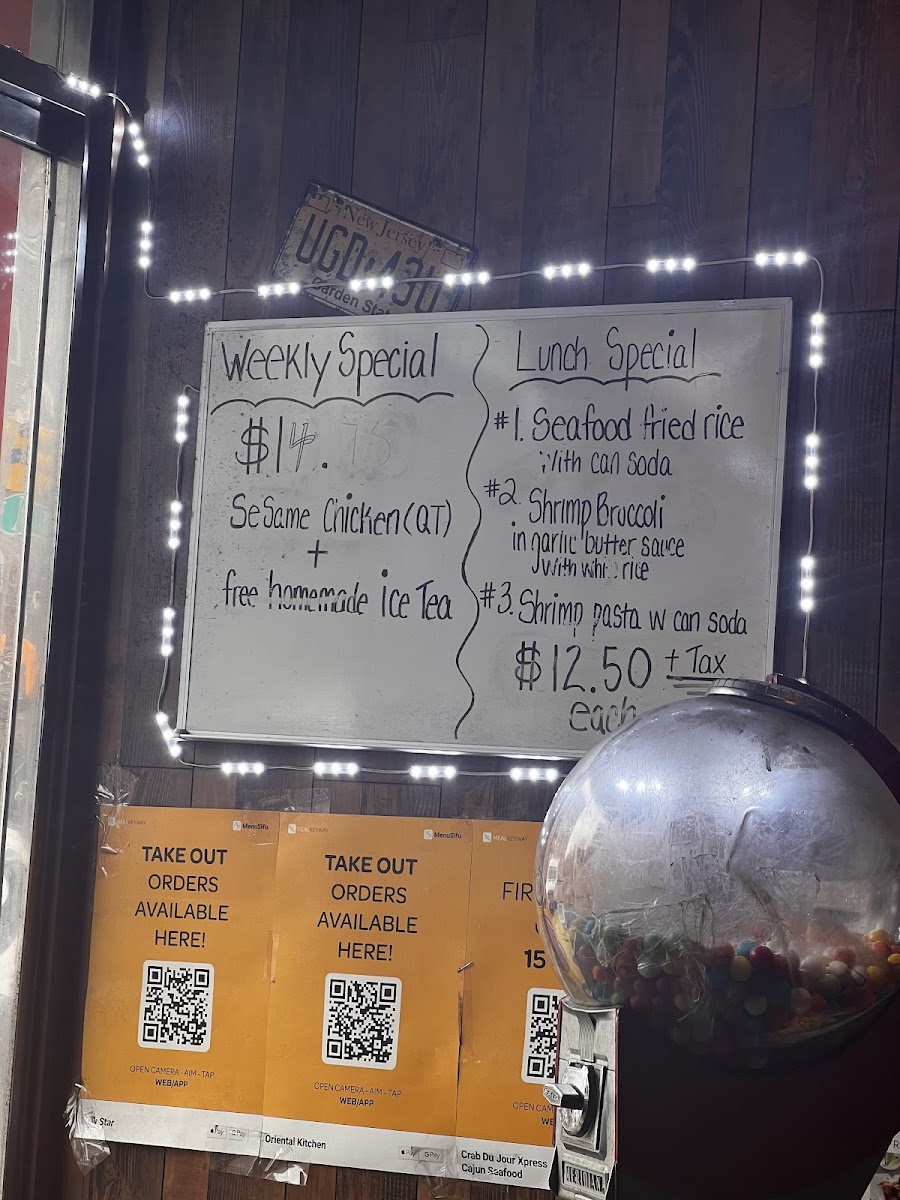 New Jersey
Garden Stat
Weekly Special
$14.75
SeSame Chicken (QT)
+
free homemade ice Tea
Lunch Special
#1. Seafood fried rice
with can soda
#2. Shrimp Broccoli
in garlic butter sauce
with white rice
#3. Shrimp pasta w can soda
$12.50 + Tax
each
MEALKEYWAY MenuSifu
TAKE OUT
ORDERS
AVAILABLE
HERE!
OPEN CAMERA - AIM - TAP
WEB/APP
Star
Pay GPay
MEALKEYWAY MenuSifu
TAKE OUT
ORDERS
AVAILABLE
HERE!
OPEN CAMERA - AIM - TAP
WEB/APP
Oriental Kitchen
Pay GPay
MEALKEYWAY
FIR
15
OPEN CAM
WE
Crab Du Jour Xpress
Cajun Seafood